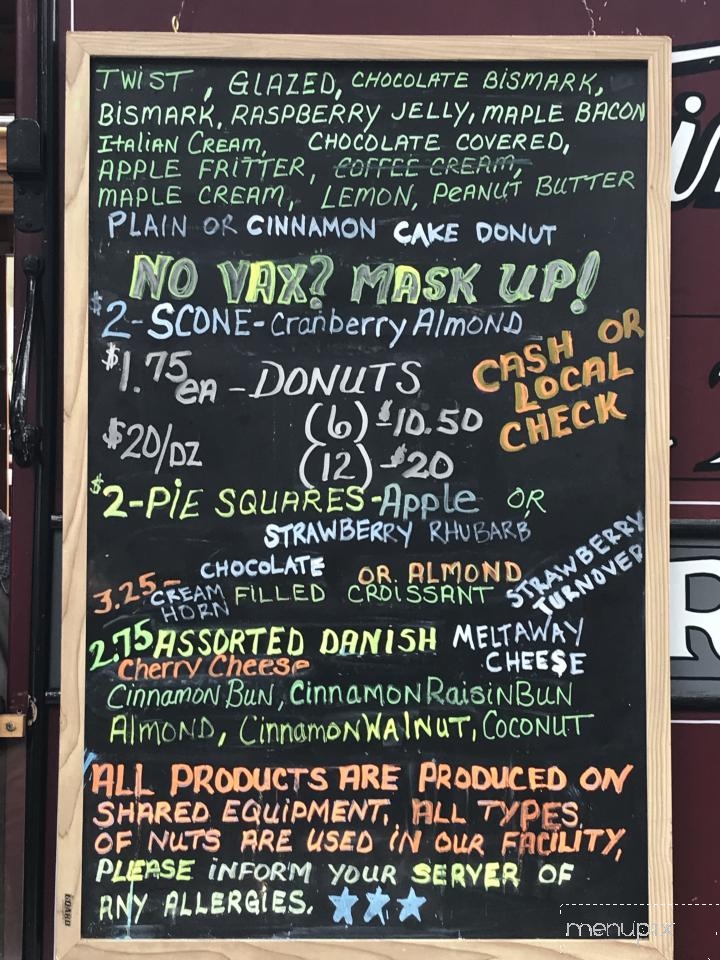 TWIST, GLAZED, CHOCOLATE BISMARK,
BISMARK, RASPBERRY JELLY, MAPLE BACON
Italian Cream, CHOCOLATE COVERED,
APPLE FRITTER, COFFEE CREAM,
MAPLE CREAM, LEMON, PEANUT BUTTER
PLAIN OR CINNAMON CAKE DONUT
NO VAX? MASK UP!
$2-SCONE-Cranberry Almond
$1.75 EA - DONUTS
(6) - $10.50
$20/DZ
(12) - $20
CASH OR
LOCAL
CHECK
$2-PIE SQUARES-Apple OR
STRAWBERRY RHUBARB
CHOCOLATE OR ALMOND
3.25- CREAM HORN FILLED CROISSANT
STRAWBERRY
TURNOVER
2.75 ASSORTED DANISH MELTAWAY
Cherry Cheese CHEESE
Cinnamon Bun, Cinnamon Raisin Bun
Almond, Cinnamon WAlnut, Coconut
ALL PRODUCTS ARE PRODUCED ON
SHARED EQUIPMENT, ALL TYPES
OF NUTS ARE USED IN OUR FACILITY,
PLEASE INFORM YOUR SERVER OF
ANY ALLERGIES.
menupix